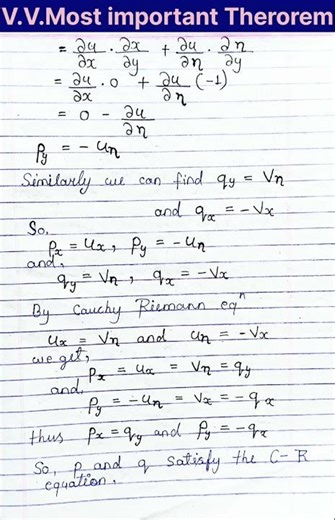 V.V.Most important Therorem
= ∂u/∂x · ∂x/∂y + ∂u/∂η · ∂η/∂y
= ∂u/∂x · 0 + ∂u/∂η (-1)
= 0 - ∂u/∂η
Py = - uη
Similarly we can find qy = Vη
and qx = - Vx
So,
Px = Ux, Py = - uη
and,
qy = Vη, qx = - Vx
By Cauchy Riemann eqn
Ux = Vη and uη = - Vx
we get,
Px = Ux = Vη = qy
and
Py = - uη = Vx = - qx
thus Px = qy and Py = - qx
So, p and q satisfy the C-R
equation.